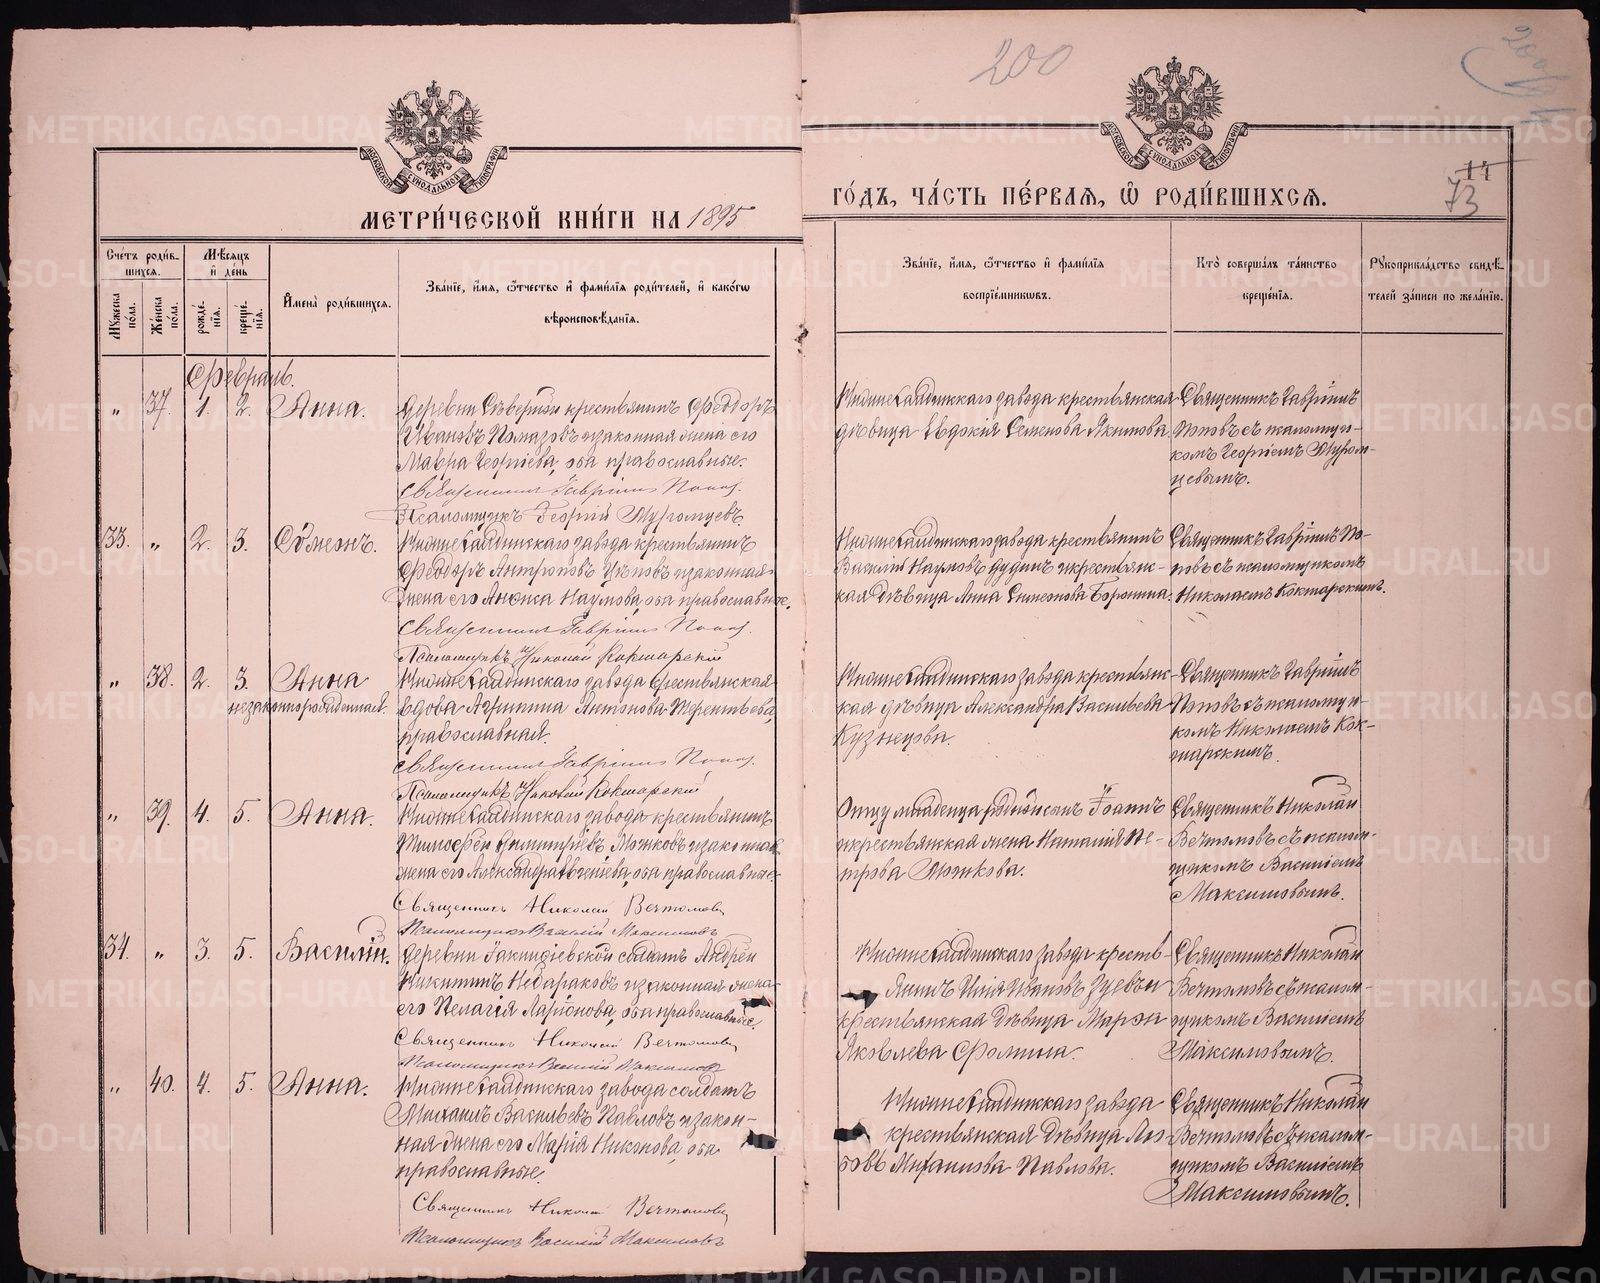 200
МОСКОВСКОЙ СѴНОДАЛЬНОЙ ТИПОГРАФІИ
МОСКОВСКОЙ СѴНОДАЛЬНОЙ ТИПОГРАФІИ
МЕТРИ́ЧЕСКОЙ КНИ́ГИ НА 1895
ГО́ДЪ, ЧА́СТЬ ПЕ́РВАЯ, Ѡ РОДИ́ВШИХСЯ.
14
73
Сче́тъ роди́в-
шихся.
Му́жеска по́ла.
Же́нска по́ла.
Мѣ́сяцъ
и де́нь
рожде́-
нія.
креще́-
нія.
Имена̀ роди́вшихся.
Зва́ніе, и́мя, ѻ́тчество и фами́лія роди́телей, и како́гѡ
вѣроисповѣ́данія.
Зва́ніе, и́мя, ѻ́тчество и фами́лія
воспріе́мникѡвъ.
Кто̀ соверша́лъ та́инство
креще́нія.
Рукоприкла́дство свидѣ́-
телей за́писи по жела́нію.
Февраль.
„ 37. 1. 2. Анна.
Деревни Северной крестьянинъ Феодоръ
Ивановъ и законная жена его
Мавра Георгіева, оба православные.
Священникъ Гавріилъ Поповъ.
Псаломщикъ Георгій Муромцевъ
Нижнесалдинскаго завода крестьянская
дѣвица Евдокія Семенова Якимова
Священникъ Гавріилъ
Поповъ съ псаломщи-
комъ Георгіемъ Муром-
цевымъ.
33. „ 2. 3. Сѷмеонъ.
Нижнесалдинскаго завода крестьянинъ
Феодоръ Антроповъ и законная
жена его Анисья Наумова, оба православные.
Священникъ Гавріилъ Поповъ.
Псаломщикъ Николай Кокшарскій
Нижнесалдинскаго завода крестьянинъ
Василій Наумовъ Дудинъ и крестьянс-
кая дѣвица Анна Симеонова
Священникъ Гавріилъ По-
повъ съ псаломщикомъ
Николаемъ Кокшарскимъ.
„ 38. 2. 3. Анна
незаконнорожденная.
Нижнесалдинскаго завода крестьянская
вдова Агрипина Антонова Терентьева,
православная.
Священникъ Гавріилъ Поповъ.
Псаломщикъ Николай Кокшарскій
Нижнесалдинскаго завода крестьянс-
кая дѣвица Александра Васильева
Кузнецова.
Священникъ Гавріилъ
Поповъ съ псаломщи-
комъ Николаемъ Кок-
шарскимъ.
„ 39. 4. 5. Анна.
Нижнесалдинскаго завода крестьянинъ
Тимофей Димитріевъ и законная
жена его Александра Евгеніева, оба православные.
Священникъ Николай Вечтомовъ
Псаломщикъ Василій Максимовъ
Отцу младенца родной сынъ Іоаннъ
и крестьянская жена Наталія Пе-
трова
Священникъ Николай
Вечтомовъ съ псалом-
щикомъ Василіемъ
Максимовымъ.
34. „ 3. 5. Василій.
Деревни солдатъ Андрей
Никитинъ и законная жена
его Пелагія Ларіонова, оба православные.
Священникъ Николай Вечтомовъ
Псаломщикъ Василій Максимовъ
Нижнесалдинскаго завода кресть-
янинъ Илія Ивановъ Зуевъ и
крестьянская дѣвица Марѳа
Яковлева Фомина.
Священникъ Николай
Вечтомовъ съ псалом-
щикомъ Василіемъ
Максимовымъ.
„ 40. 4. 5. Анна.
Нижнесалдинскаго завода солдатъ
Михаилъ Васильевъ Павловъ и закон-
ная жена его Марія Никонова, оба
православные.
Священникъ Николай Вечтомовъ
Псаломщикъ Василій Максимовъ
Нижнесалдинскаго завода
крестьянская дѣвица Лю-
бовь Михаилова Павлова.
Священникъ Николай
Вечтомовъ съ псалом-
щикомъ Василіемъ
Максимовымъ.
METRIKI.GASO-URAL.RU